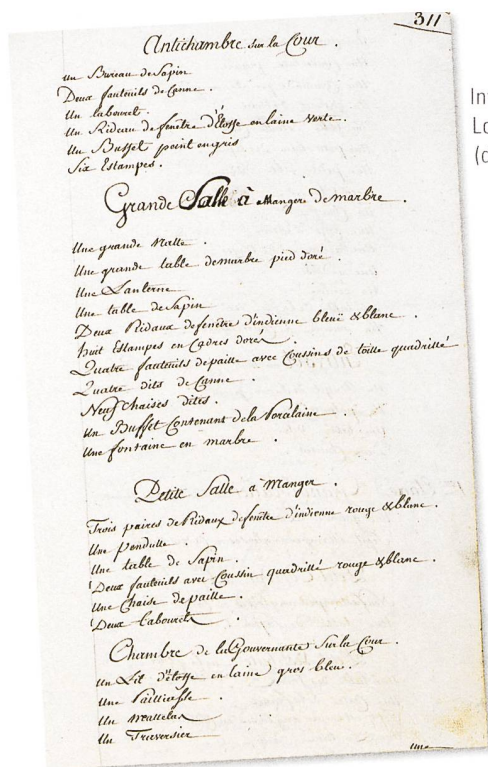 311
Antichambre sur la Cour.
un Bureau de Sapin
Deux fauteuils de Canne.
Un tabouret.
Un Rideau de fenêtre d'Étosse en laine verte.
Un Buffet peint en gris
Six Estampes.
Grande Salle à Manger de marbre.
Une grande Natte.
Une grande table de marbre pied doré.
Une Lanterne
Une table de Sapin
Deux Ridaux de fenêtre d'indienne bleuë & blanc.
huit Estampes en Cadres dorez
Quatre fauteuils de paille avec Coussins de toille quadrillé
Quatre dits de Canne.
Neuf Chaises dites.
Un Buffet Contenant de la Porcelaine.
Une fontaine en marbre.
Petite Salle à Manger.
Trois paires de Ridaux de fenêtre d'indienne rouge & blanc.
Une Pendulle.
Une table de Sapin.
Deux fauteuils avec Coussin quadrillé rouge & blanc.
Une Chaise de paille.
Deux tabourets.
Chambre de la Gouvernante Sur la Cour.
Un Lit d'étosse en laine gros bleu.
Une Pailliasse
Un Mattelas
Un Traversier
une
In
Lo
(d